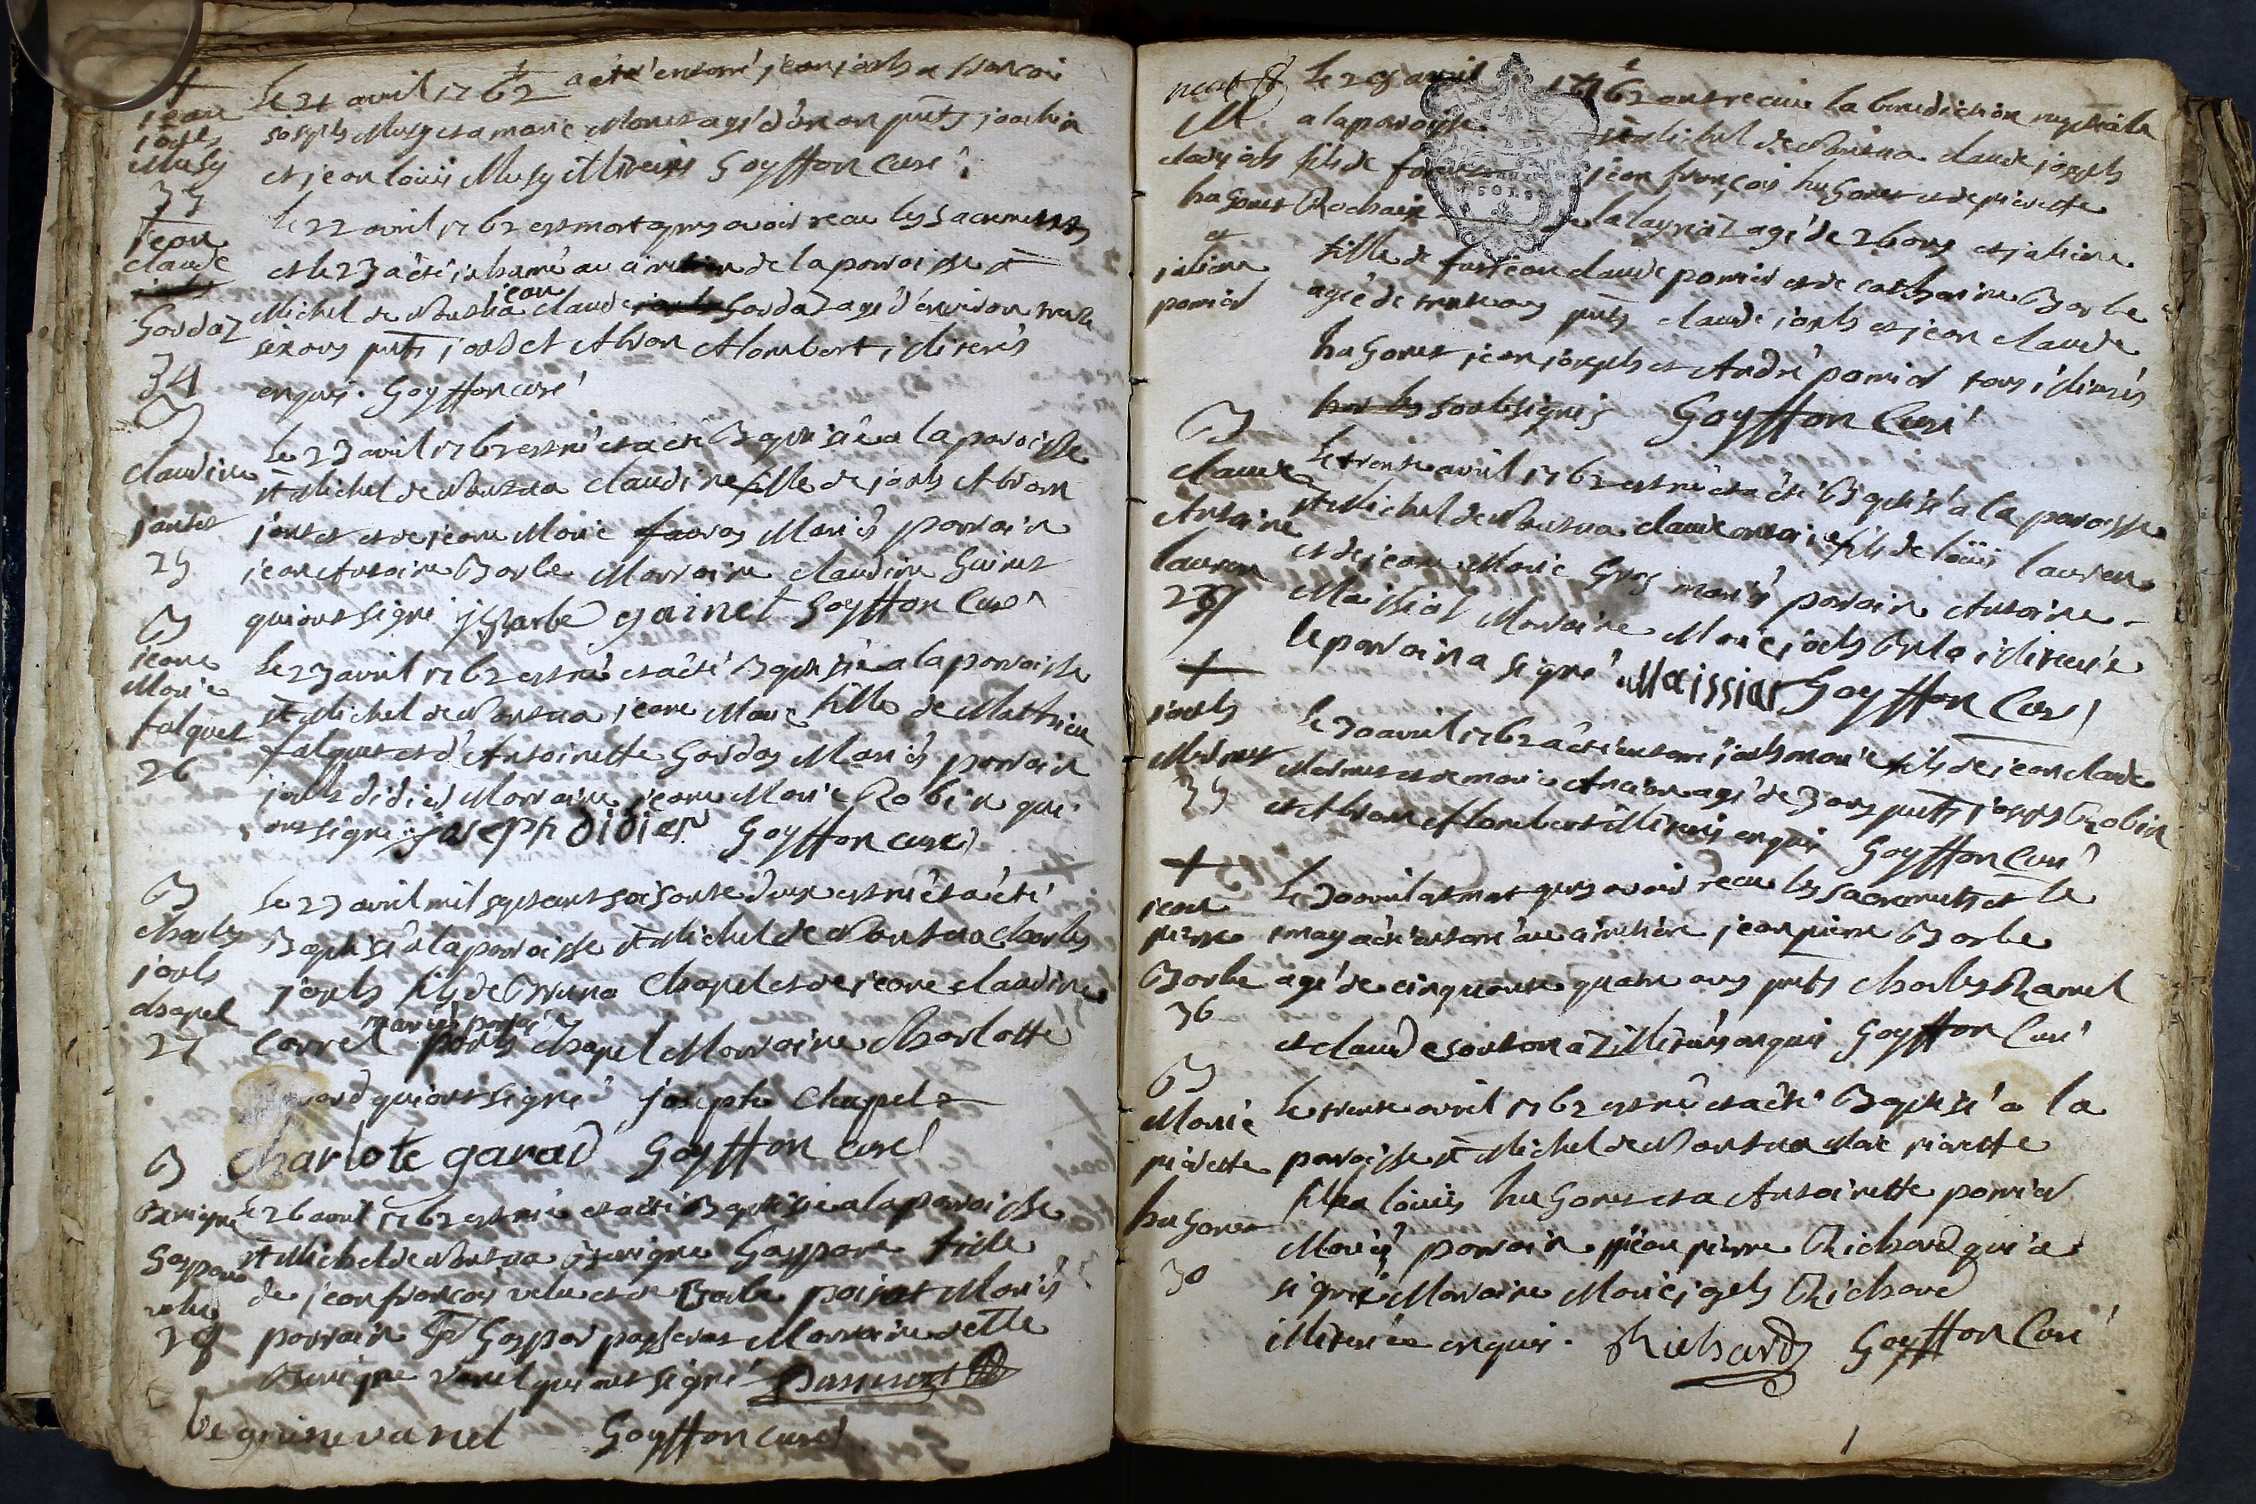 +
jean
josph
Musy
33
Le 21 avril 1762 a eté enterré jean josph a francois
joseph Musy et a marie Monet agé d'un an pnts joachin
et jean loüis Musy illiterés Goyffon Curé
+
jean
claude
Gordaz
34
le 22 avril 1762 est mort apres avoir recu les sacrements
et le 23 a été inhumé au cimetiere de la paroisse st
Michel de Nantua jean claude Gordaz agé d'environ trente
six ans pnts et Abram Alombert, illiterés
enquis. Goyffon curé
B
claudine
jantet
25
Le 23 avril 1762 est né et a été Baptisée a la paroisse
st Michel de Nantua claudine fille de josph Abram
jantet et de jeane Marie favros Mariés parrain
jean Antoine Barbe Marraine claudine Guinet
qui ont signé j Barbe gainet Goyffon Curé
B
jeane
Marie
falquet
26
Le 23 avril 1762 est né et a été Baptisée a la paroisse
st Michel de Nantua jeane Marie fille de Mathieu
falquet et d'Antoinette Gordas Mariés parrain
josph didier Marraine jeane Marie Robin qui
ont signé joseph didier Goyffon curé
B
charles
josph
chapel
27
Le 23 avril mil sept cent soisante deux est né et a été
Baptisé a la paroisse st Michel de Nantua charles
josph fils de Bruno Chapel et de jeane claudine
Carrel mariés parrain
josph chapel Marraine charlotte
qui ont signé joseph Chapel
charlote garad Goyffon curé
B
Benigne
Gaspare
velu
28
Le 26 avril 1762 est née et a été Baptisée a la paroisse
st Michel de Nantua Benigne Gaspare fille
de jean francois velu et de Barbe poinat Mariés
parrain Gaspar passerat Marraine delle
Benigne vanel qui ont signé Passerat
begninevanel Goyffon curé
M.
claude josph
huGonet
et
juliene
pomiel
Le 29 avril 1762 ont recu la benediction nuptiale
a la paroisse st Michel de Nantua claude joseph
fils de jean françois huGonet et de pierrette
Rochaix de la layriaz agé de 26 ans et juliene
fille de fust jean claude pomiel et de catherine Barbe
agée de trente ans pnts claude josph et jean claude
huGonet jean joseph et André pomiel tous illiterés
hor les soubsignés Goyffon Curé
B
claude
Antoine
lauren
29
Le trente avril 1762 est né et a été Baptisé a la paroisse
st Michel de Nantua claude antoine fils de loüis lauren
et de jeane Marie Gros mariés parrain Antoine
Maissiat Marraine Marie josph illiterée
le parrain a signé Maissiat Goyffon Curé
+
josph
35
Le 30 avril 1762 a été enterré josph marie fils de jean claude
et de marie Ancian agé de 3 ans pnts joseph Robin
et Abram Alombert illiterés enquis Goyffon Curé
+
jean
pierre
Barbe
36
Le 30 avril est mort apres avoir recu les sacrements et le
1 may a été enterré au cimetiere jean pierre Barbe
agé de cinquante quatre ans pnts charles Ravel
et claude sontonaz illiterés enquis Goyffon Curé
B
Marie
pierrette
huGonet
30
Le trente avril 1762 est né et a été Baptisé a la
paroisse st Michel de Nantua Marie pierrette
fille a loüis huGonet et a Antoinette pomiel
Mariés parrain jean pierre Richard qui a
signé Marraine Marie josph Richard
illiterée enquis. Richard Goyffon Curé
1